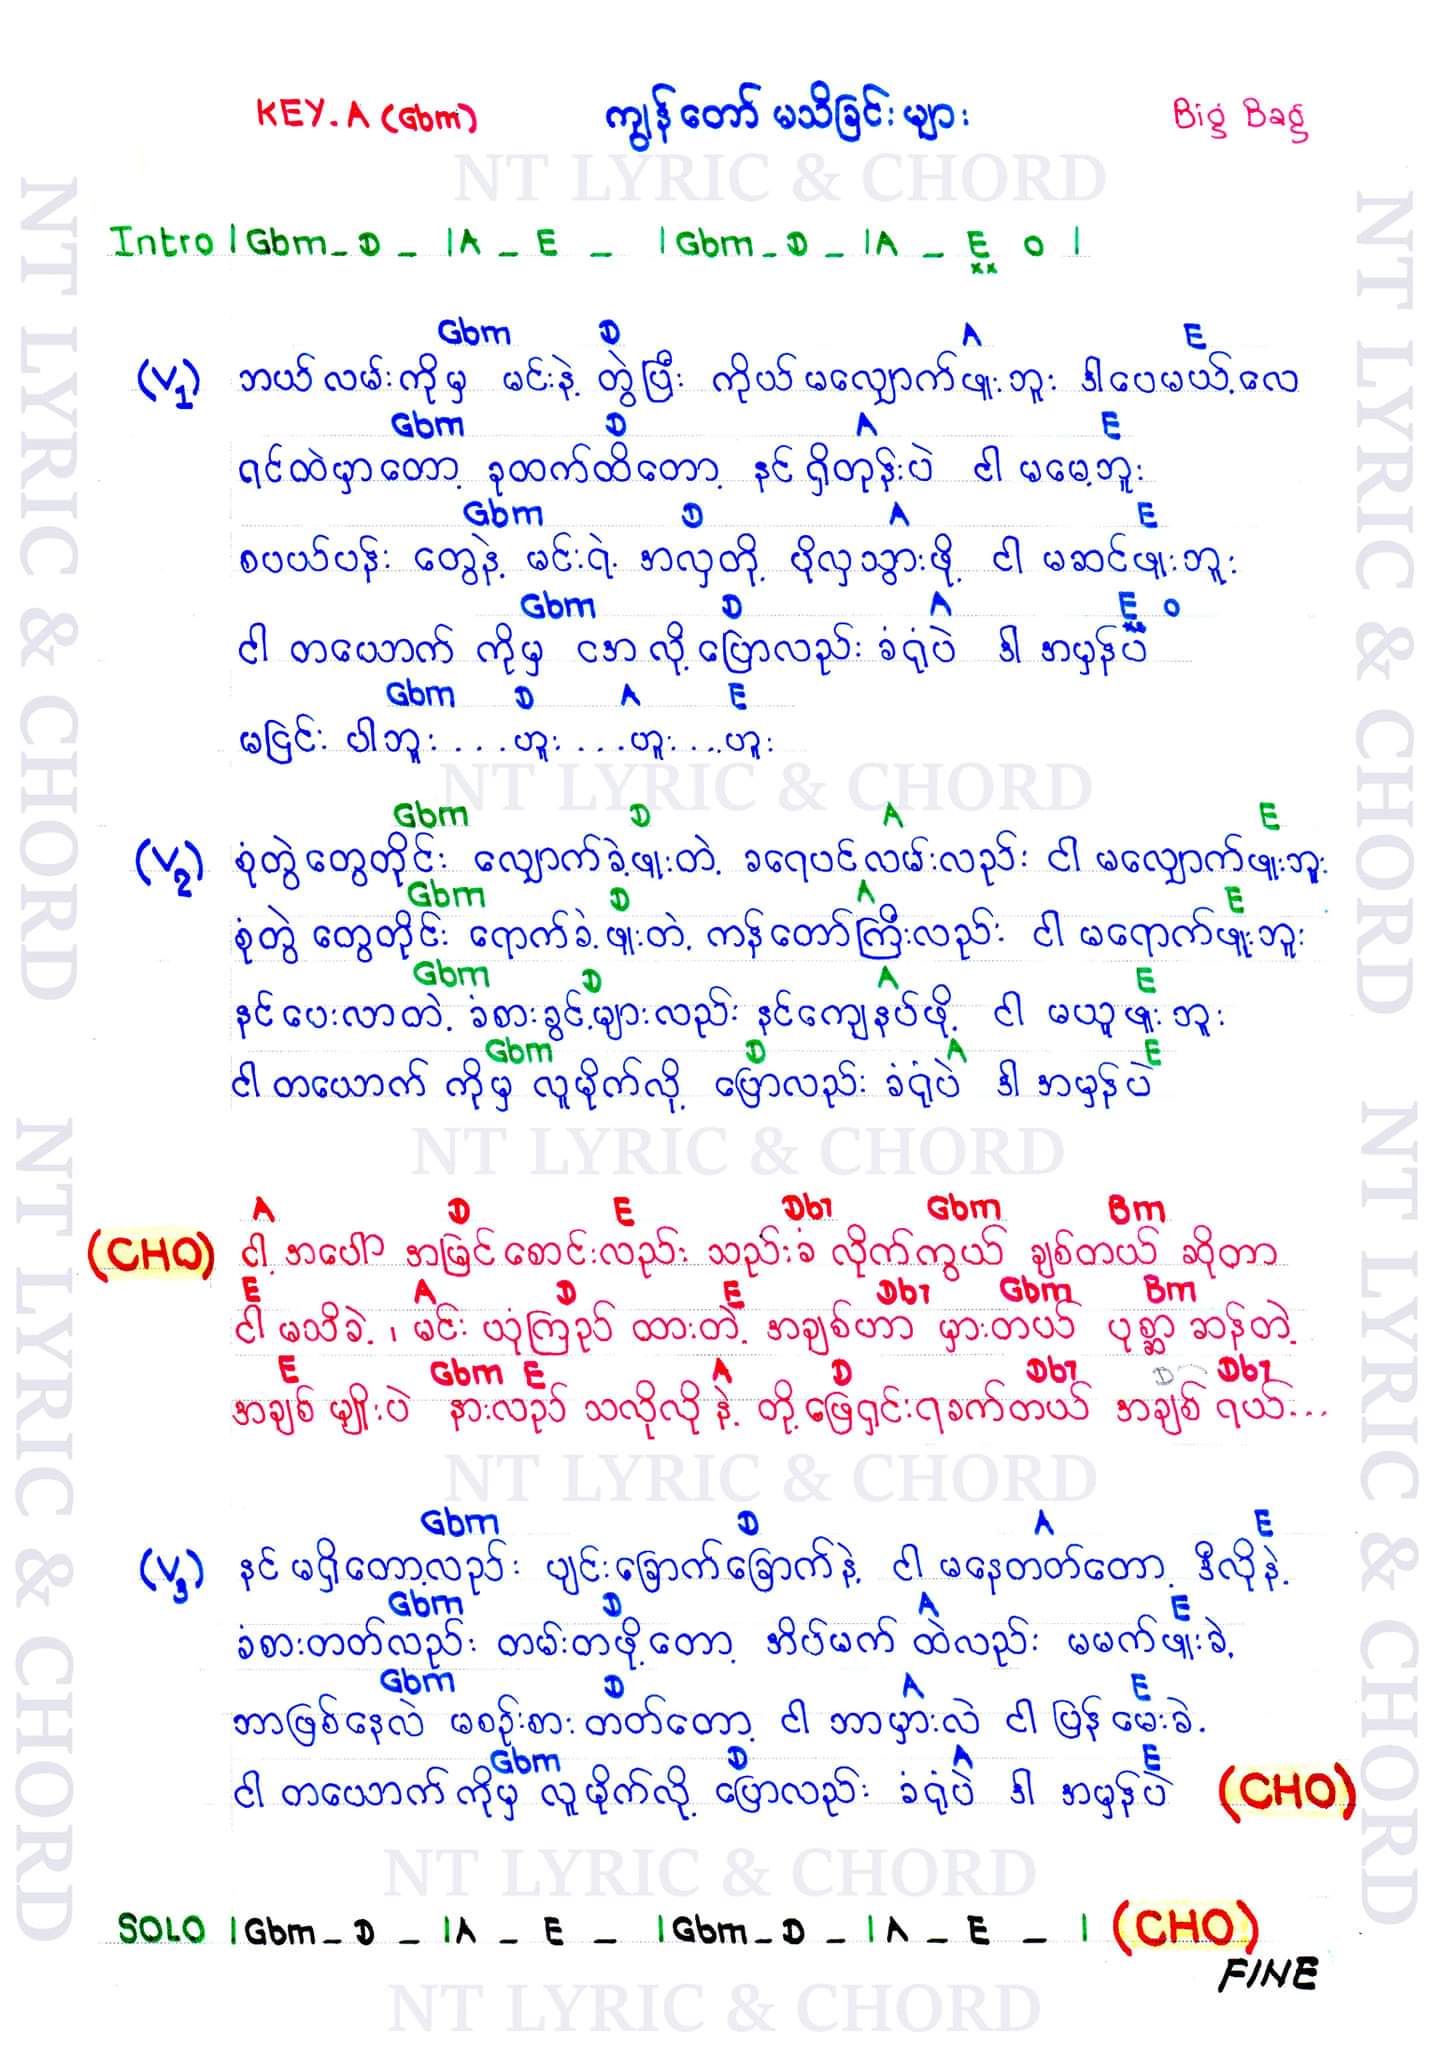 KEY. A (Gbm) ကျွန်တော် မသိခြင်းများ Big Bag
NT LYRIC & CHORD
Intro | Gbm _ D _ | A _ E _ | Gbm _ D _ | A _ E o |
xx
Gbm D A E
(V1) ဘယ်လမ်းကိုမှ မင်းနဲ့ တွဲပြီး ကိုယ် မလျှောက်ဖူးဘူး ဒါပေမယ့်လေ
Gbm D A E
ရင်ထဲမှာတော့ ခုထက်ထိတော့ နင် ရှိတုန်းပဲ ငါ မမေ့ဘူး
Gbm D A E
စပယ်ပန်း တွေနဲ့ မင်းရဲ့ အလှတို့ ပိုလှသွားဖို့ ငါ မဆင်ဖူးဘူး
Gbm D A E o
xx
ငါ တယောက် ကိုမှ ငအ လို့ ပြောလည်း ခံရုံပဲ ဒါ အမှန်ပဲ
Gbm D A E
မငြင်း ပါဘူး ... ဟူး ... ဟူး ... ဟူး
NT LYRIC & CHORD
Gbm D A E
(V2) စုံတွဲတွေတိုင်း လျှောက်ခဲ့ဖူးတဲ့ ခရေပင်လမ်းလည်း ငါ မလျှောက်ဖူးဘူး
Gbm D A E
စုံတွဲ တွေတိုင်း ရောက်ခဲ့ဖူးတဲ့ ကန်တော်ကြီးလည်း ငါ မရောက်ဖူးဘူး
Gbm D A E
နင်ပေးလာတဲ့ ခံစားခွင့်များလည်း နင်ကျေနပ်ဖို့ ငါ မယူဖူးဘူး
Gbm D A E
ငါ တယောက် ကိုမှ လူမိုက်လို့ ပြောလည်း ခံရုံပဲ ဒါ အမှန်ပဲ
NT LYRIC & CHORD
A D E Db7 Gbm Bm
(CHO) ငါ့ အပေါ် အမြင်စောင်းလည်း သည်းခံ လိုက်ကွယ် ချစ်တယ် ဆိုတာ
E A D E Db7 Gbm Bm
ငါ မသိခဲ့ ၊ မင်း ယုံကြည် ထားတဲ့ အချစ်ဟာ မှားတယ် ပုစ္ဆာ ဆန်တဲ့
E Gbm E A D Db7 D Db7
အချစ် မျိုးပဲ နားလည် သလိုလို နဲ့ တို့ ဖြေရှင်းရခက်တယ် အချစ် ရယ်...
NT LYRIC & CHORD
Gbm D A E
(V3) နင် မရှိတော့လည်း ပျင်းခြောက်ခြောက်နဲ့ ငါ မနေတတ်တော့ ဒီလိုနဲ့
Gbm D A E
ခံစားတတ်လည်း တမ်းတဖို့တော့ အိပ်မက် ထဲလည်း မမက်ဖူးခဲ့
Gbm D A E
ဘာဖြစ်နေလဲ မစဉ်းစား တတ်တော့ ငါ ဘာမှားလဲ ငါ ပြန် မေးခဲ့
Gbm D A E
ငါ တယောက် ကိုမှ လူမိုက်လို့ ပြောလည်း ခံရုံပဲ ဒါ အမှန်ပဲ (CHO)
NT LYRIC & CHORD
SOLO | Gbm _ D _ | A _ E _ | Gbm _ D _ | A _ E _ | (CHO)
FINE
NT LYRIC & CHORD
NT LYRIC & CHORD
NT LYRIC & CHORD
NT LYRIC & CHORD
NT LYRIC & CHORD